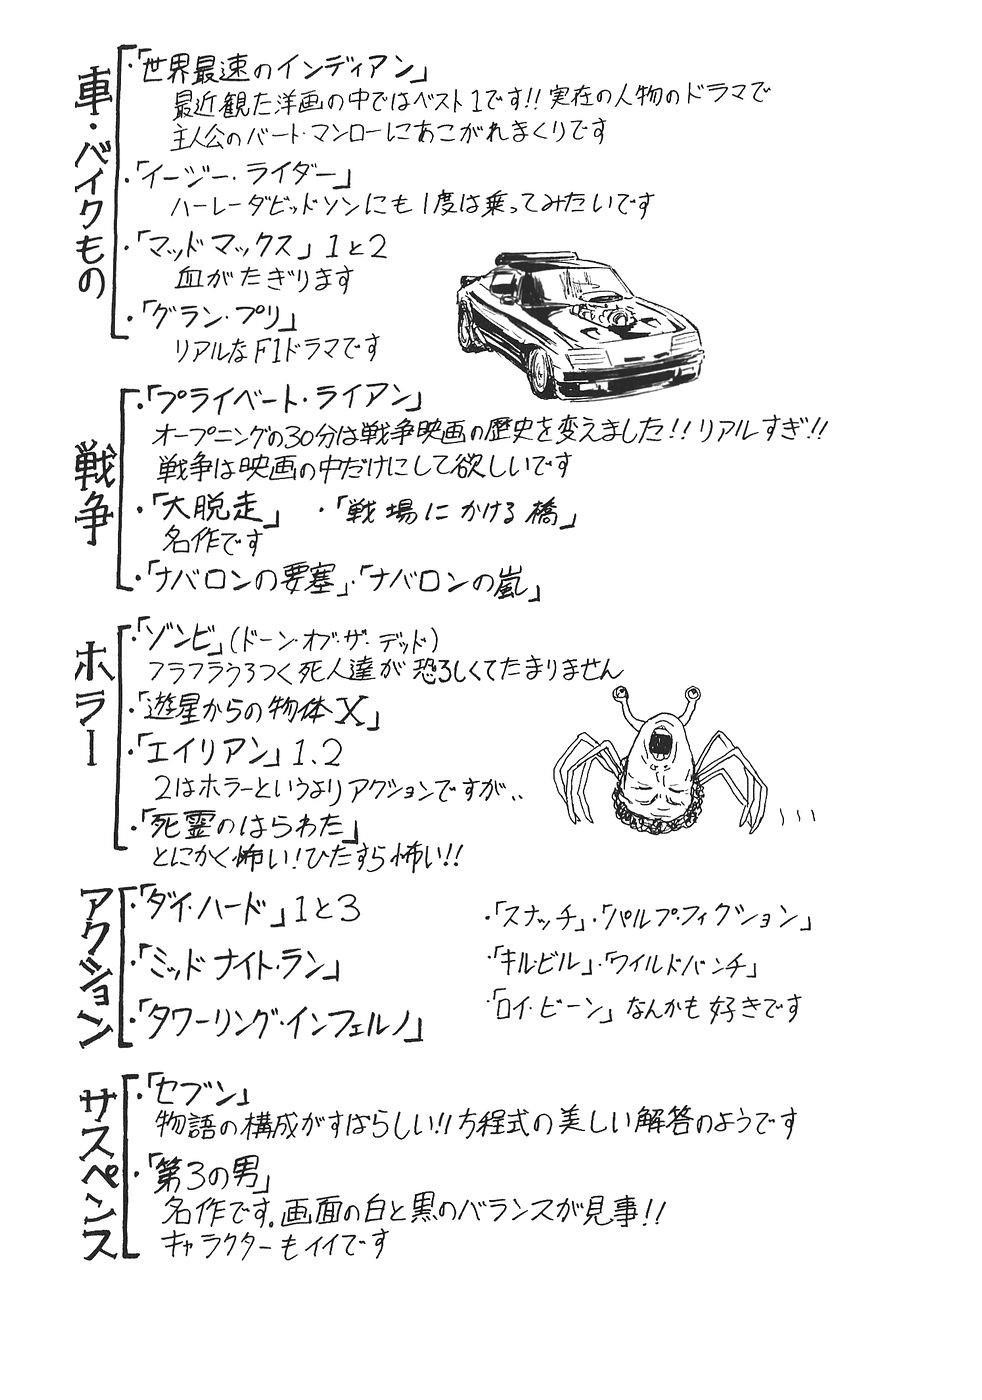 車・バイクもの
・「世界最速のインディアン」
最近観た洋画の中ではベスト1です!! 実在の人物のドラマで
主人公のバート・マンローにあこがれまくりです
・「イージー・ライダー」
ハーレーダビッドソンにも1度は乗ってみたいです
・「マッドマックス」1と2
血がたぎります
・「グラン・プリ」
リアルなF1ドラマです
戦争
・「プライベート・ライアン」
オープニングの30分は戦争映画の歴史を変えました!! リアルすぎ!!
戦争は映画の中だけにして欲しいです
・「大脱走」 ・「戦場にかける橋」
名作です
・「ナバロンの要塞」・「ナバロンの嵐」
ホラー
・「ゾンビ」(ドーン・オブ・ザ・デッド)
フラフラうろつく死人達が恐ろしくてたまりません
・「遊星からの物体X」
・「エイリアン」1.2
2はホラーというよりアクションですが..
・「死霊のはらわた」
とにかく怖い!ひたすら怖い!!
アクション
・「ダイ・ハード」1と3
・「ミッドナイト・ラン」
・「タワーリング・インフェルノ」
・「スナッチ」・「パルプ・フィクション」
・「キル・ビル」・「ワイルドバンチ」
・「ロイ・ビーン」なんかも好きです
サスペンス
・「セブン」
物語の構成がすばらしい!! 方程式の美しい解答のようです
・「第3の男」
名作です。画面の白と黒のバランスが見事!!
キャラクターもイイです